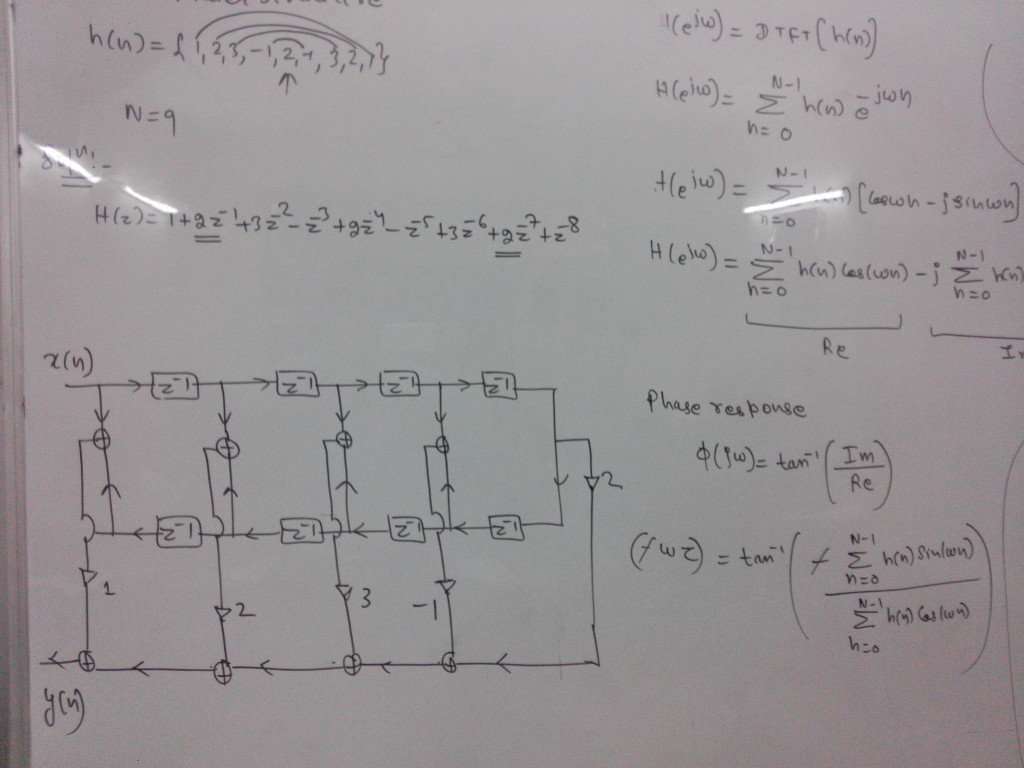 h(n) = { 1, 2, 3, -1, 2, -1, 3, 2, 1 }
↑
N = 9
Solⁿ:-
H(z) = 1 + 2z⁻¹ + 3z⁻² - z⁻³ + 2z⁻⁴ - z⁻⁵ + 3z⁻⁶ + 2z⁻⁷ + z⁻⁸
x(n)
z⁻¹ z⁻¹ z⁻¹ z⁻¹
2
z⁻¹ z⁻¹ z⁻¹ z⁻¹
1 2 3 -1
y(n)
H(e^{jω}) = DTFT[h(n)]
H(e^{jω}) = Σ_{n=0}^{N-1} h(n) e^{-jωn}
H(e^{jω}) = Σ_{n=0}^{N-1} h(n) [Cosωn - j sinωn]
H(e^{jω}) = Σ_{n=0}^{N-1} h(n) Cos(ωn) - j Σ_{n=0}^{N-1} h(n)
Re
Phase response
ϕ(jω) = tan⁻¹ (Im / Re)
(-ωτ) = tan⁻¹ ( - Σ_{n=0}^{N-1} h(n) sin(ωn) / Σ_{n=0}^{N-1} h(n) Cos(ωn) )